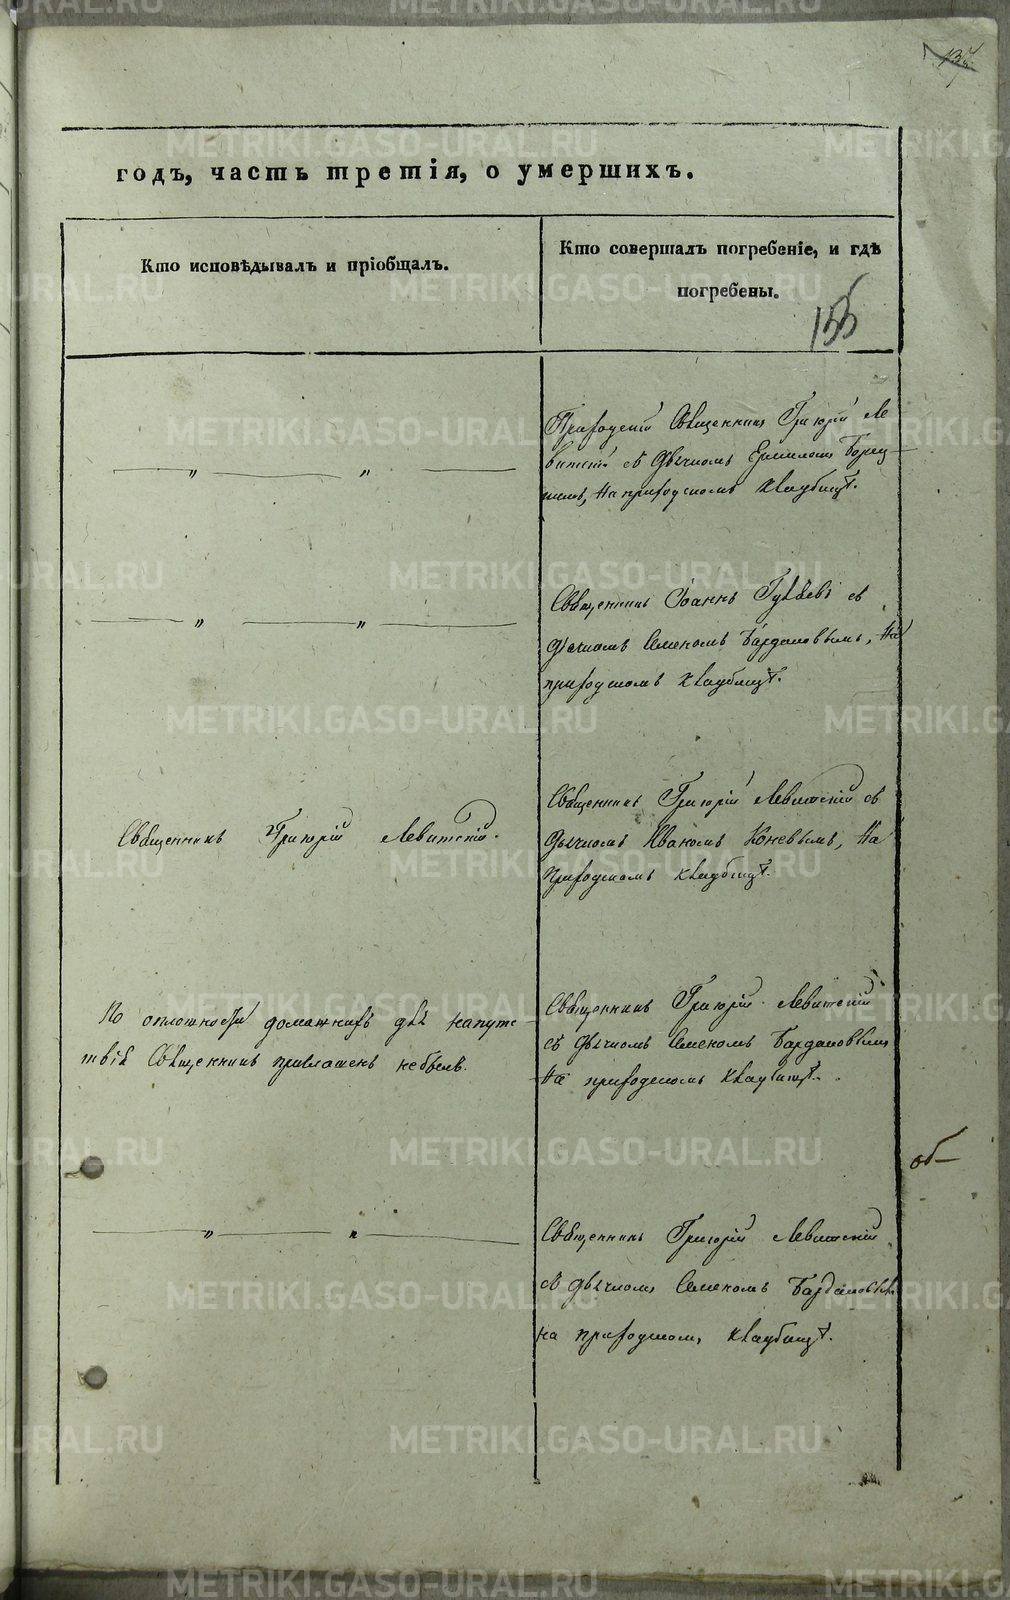 годъ, часть третія, о умершихъ.
Кто исповѣдывалъ и пріобщалъ.
Кто совершалъ погребеніе, и гдѣ
погребены.
155
Приходскій Священникъ Григорій Ле
витскій съ Дьячкомъ
на приходскомъ кладбищѣ.
Священникъ Іоаннъ съ
дьячкомъ Семеномъ Бардановымъ, на
приходскомъ кладбищѣ.
Священникъ Григорій Левитскій.
Священникъ Григорій Левитскій съ
Дьячкомъ Иваномъ Коневымъ, на
приходскомъ кладбищѣ.
По оплошности домашнихъ для напутс
твія Священникъ приглашенъ небылъ.
Священникъ Григорій Левитскій
съ Дьячкомъ Семеномъ Бардановымъ
на приходскомъ кладбищѣ.
об
Священникъ Григорій Левитскій
съ дьячкомъ Семеномъ Бардановымъ
на приходскомъ кладбищѣ.
METRIKI.GASO-URAL.RU